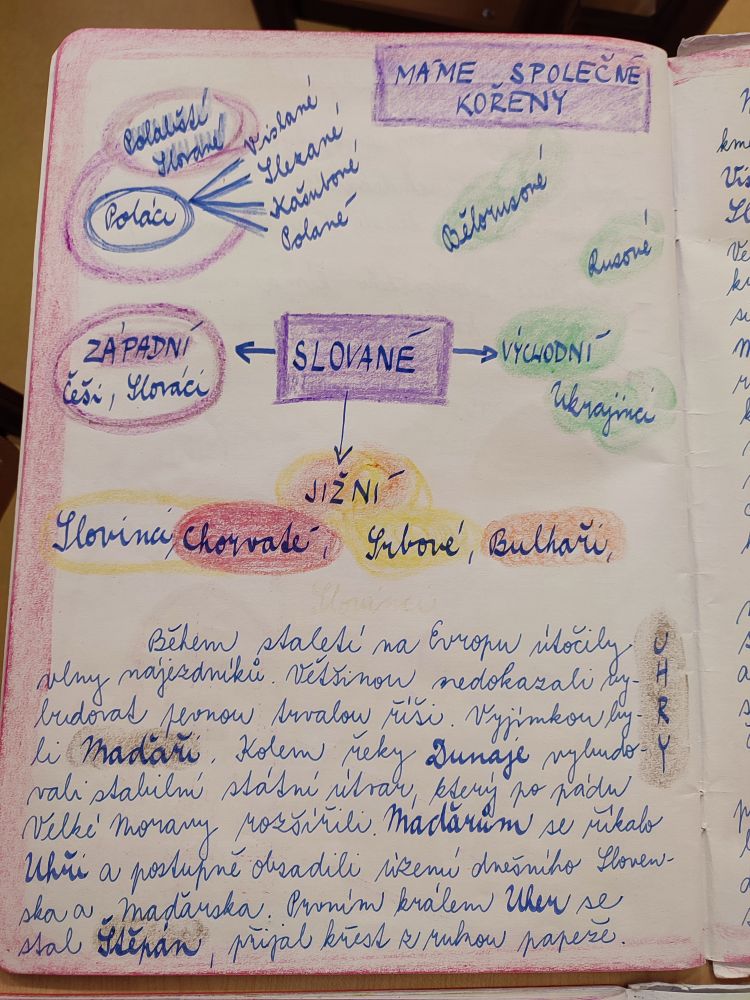 MÁME SPOLEČNÉ
KOŘENY
Polabští
Slované
Vislané,
Slezané
Kašubové
Polané
Poláci
Bělorusové
Rusové
ZÁPADNÍ
Češi, Slováci
SLOVANÉ
VÝCHODNÍ
Ukrajinci
JIŽNÍ
Slovinci, Chorvaté, Srbové, Bulhaři,
Během staletí na Evropu útočily
vlny nájezdníků. Většinou nedokázali vy-
budovat pevnou trvalou říši. Vyjímkou by-
li Maďaři. Kolem řeky Dunaje vybudo-
vali stabilní státní útvar, který po pádu
Velké Moravy rozšířili. Maďarům se říkalo
Uhři a postupně obsadili území dnešního Sloven-
ska a Maďarska. Prvním králem Uher se
stal Štěpán, přijal křest z rukou papeže.
UHRY